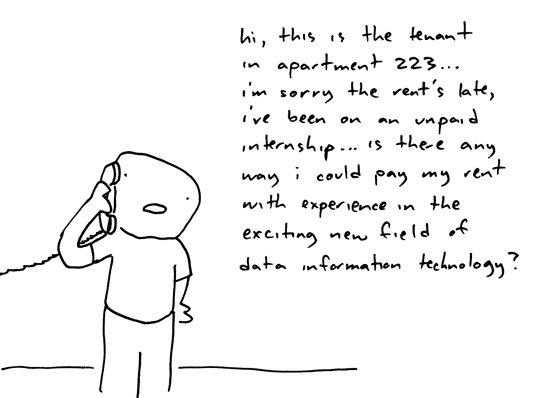 hi, this is the tenant
in apartment 223...
i'm sorry the rent's late,
i've been on an unpaid
internship... is there any
way i could pay my rent
with experience in the
exciting new field of
data information technology?